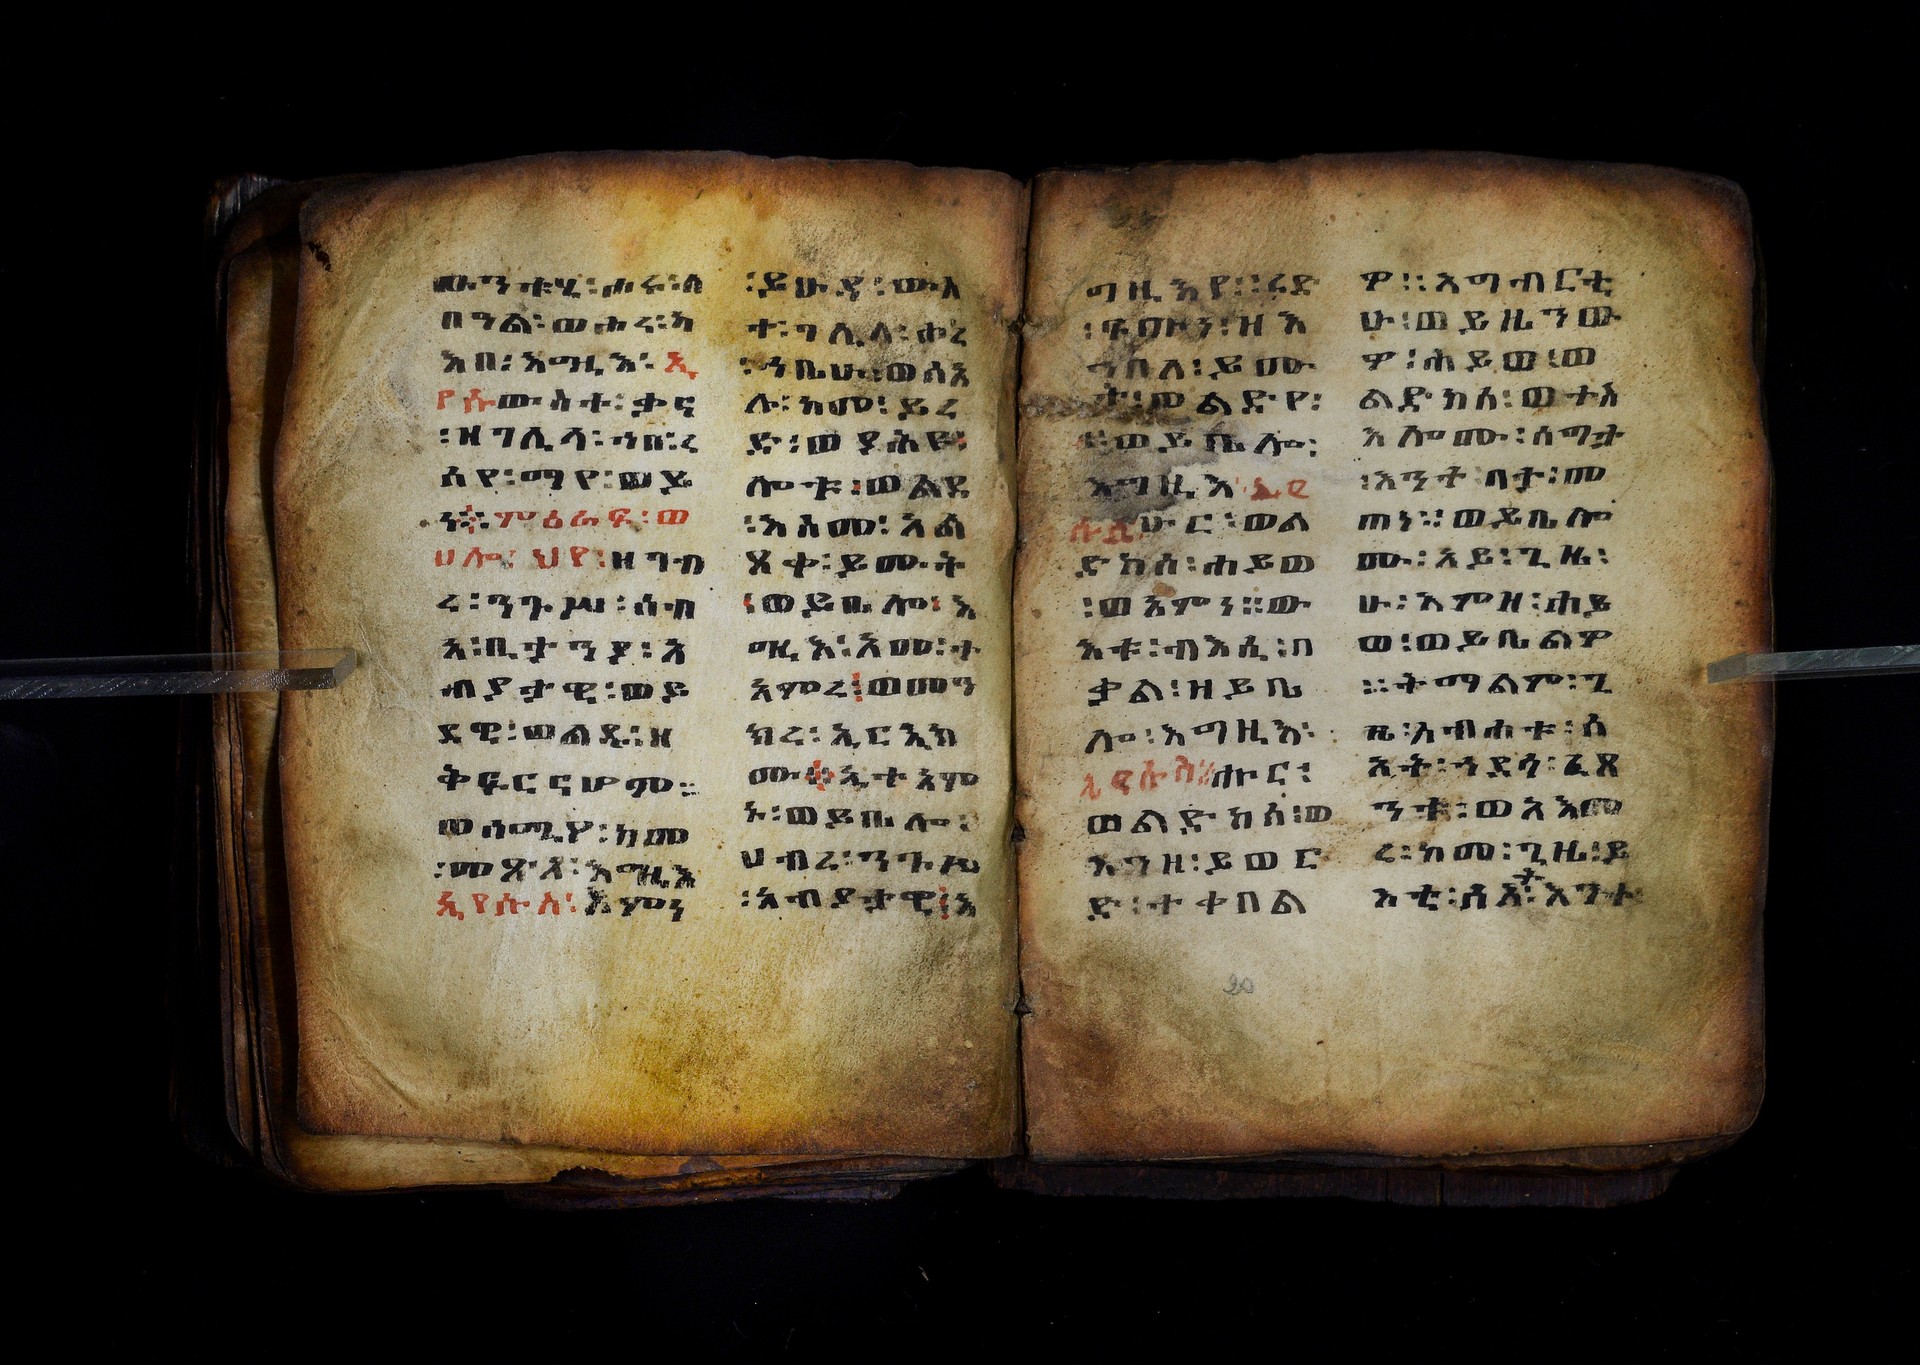 ውንቱሂ፡ሐሩ፡ለ
በዓል፡ወሖረ፡ካ
እበ፡እግዚእ፡ኢ
የሱውስተ፡ቃና
፡ዘገሊላ፡ኀበ፡ረ
ሰየ፡ማየ፡ወይ
ነ፨ምዕራፍ፡ወ
ሀሎ፡ህየ፡ዘገብ
ረ፡ንጉሥ፡ሰብ
አ፡ቢታንያ፡አ
ብያታዊ፡ወይ
ደዊ፡ወልዱ፡ዘ
ቅፍርናሆም።
ወሰሚዖ፡ከመ
፡መጽአ፡እግዚእ
ኢየሱስ፡እምነ
፡ይሁዳ፡ውስ
ተ፡ገሊላ፡ሖረ
፡ኀቤሁ፡ወሰአ
ሎ፡ከመ፡ይረ
ድ፡ወያሕዩ፡
ሎቱ፡ወልደ
፡እስመ፡አል
ጸቀ፡ይሙት
፡ወይቤሎ፡እ
ግዚእ፡እመ፡ተ
አምረ፡ወመን
ክረ፡ኢርኢክ
ሙ፨ኢተአም
ኑ፡ወይቤሎ፡
ህብረ፡ንጉሥ
፡አብያታዊ፡እ
ግዚእየ፡፡ረድ
፡ፍጡነ፡ዘእ
ንበለ፡ይሙ
ት፡ወልድየ፡
፡ወይቤሎ፡
እግዚእ፡ኢየ
ሱስሁር፡ወል
ድከሰ፡ሐይወ
፡ወአምነ፡፡ው
እቱ፡ብእሲ፡በ
ቃል፡ዘይቤ
ሎ፡እግዚእ፡
ኢየሱስ፡ሑር፡
ወልድከሰ፡ወ
እንዘ፡ይወር
ድ፡ተቀበል
ዎ፡፡አግብርቲ
ሁ፡ወይዜንው
ዎ፡ሐይወ፡ወ
ልድከሰ፡ወተስ
እሎሙ፡ሰዓታ
፡እንተ፡ባቲ፡መ
ጠነ፡፡ወይቤሎ
ሙ፡አይ፡ጊዜ፡
ሁ፡እምዘ፡ሐይ
ወ፡ወይቤልዎ
፡፡ትማልም፡ጊ
ዜ፡ስብሐቱ፡ሰ
አት፡ኀደሳ፡ፈጸ
ንቱ፡ወአእመ
ረ፡ከመ፡ጊዜ፡ይ
እቲ፡ሰዓት፡እንተ
20